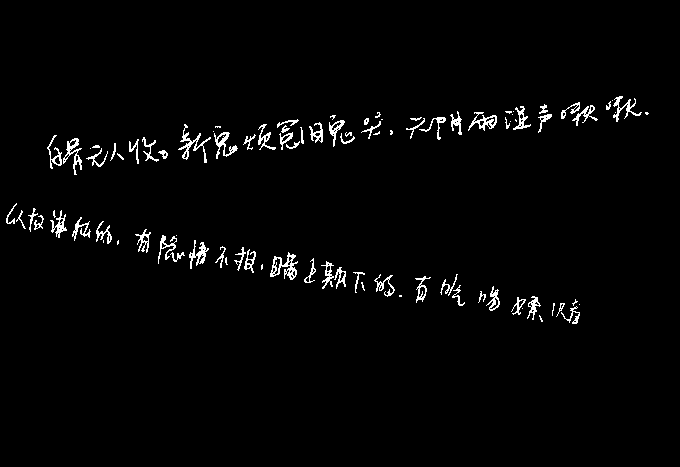 白骨无人收。新鬼烦冤旧鬼哭,天阴雨湿声啾啾.
以权谋私的,有隐情不报,瞒上欺下的.有吃喝嫖